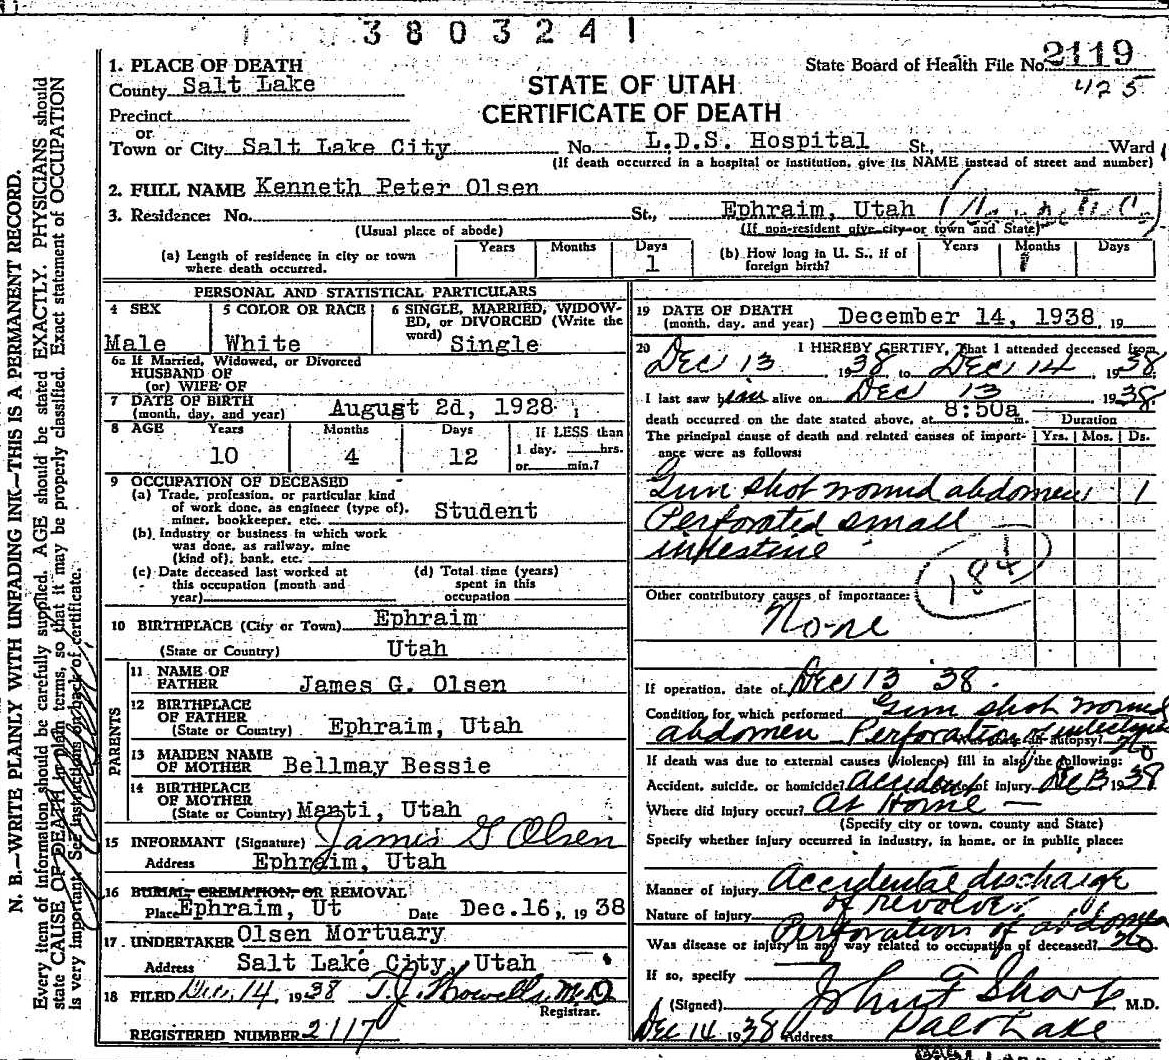 3803241
1. PLACE OF DEATH
State Board of Health File No. 2119
County Salt Lake
STATE OF UTAH
425
Precinct
CERTIFICATE OF DEATH
or
Town or City Salt Lake City No. L.D.S. Hospital St., Ward
(If death occurred in a hospital or institution, give its NAME instead of street and number)
2. FULL NAME Kenneth Peter Olsen
3. Residence: No. St., Ephraim, Utah
(Usual place of abode) (If non-resident give city or town and State)
(a) Length of residence in city or town where death occurred. Years Months Days 1
(b) How long in U. S., if of foreign birth? Years Months Days
PERSONAL AND STATISTICAL PARTICULARS
4 SEX Male
5 COLOR OR RACE White
6 SINGLE, MARRIED, WIDOWED, or DIVORCED (Write the word) Single
6a If Married, Widowed, or Divorced
HUSBAND OF
(or) WIFE OF
7 DATE OF BIRTH
(month, day, and year) August 2d, 1928
8 AGE Years Months Days If LESS than
10 4 12 1 day, hrs.
or min.?
9 OCCUPATION OF DECEASED
(a) Trade, profession, or particular kind
of work done, as engineer (type of),
miner, bookkeeper, etc. Student
(b) Industry or business in which work
was done, as railway, mine
(kind of), bank, etc.
(c) Date deceased last worked at
this occupation (month and
year)
(d) Total time (years)
spent in this
occupation
10 BIRTHPLACE (City or Town) Ephraim
(State or Country) Utah
PARENTS
11 NAME OF
FATHER James G. Olsen
12 BIRTHPLACE
OF FATHER
(State or Country) Ephraim, Utah
13 MAIDEN NAME
OF MOTHER Bellmay Bessie
14 BIRTHPLACE
OF MOTHER
(State or Country) Manti, Utah
15 INFORMANT (Signature) James G Olsen
Address Ephraim, Utah
16 BURIAL, CREMATION, OR REMOVAL
Place Ephraim, Ut Date Dec.16, 1938
17. UNDERTAKER Olsen Mortuary
Address Salt Lake City, Utah
18 FILED Dec. 14, 1938 T.J. Howells M.D.
Registrar.
REGISTERED NUMBER 2117
19 DATE OF DEATH
(month, day, and year) December 14, 1938, 19
20 I HEREBY CERTIFY, That I attended deceased from
Dec 13, 1938, to Dec 14, 1938
I last saw him alive on Dec 13 1938
death occurred on the date stated above, at 8:50a m.
Duration
The principal cause of death and related causes of importance were as follows:
Yrs. Mos. Ds.
Gun shot wound abdomen 1
Perforated small
intestine
184
Other contributory causes of importance:
None
If operation, date of Dec 13 38.
Condition for which performed Gun shot wound
abdomen Perforation of intestine
Was there an autopsy? No
If death was due to external causes (violence) fill in also the following:
Accident, suicide, or homicide? accident Date of injury Dec 13 1938
Where did injury occur? At Home —
(Specify city or town, county and State)
Specify whether injury occurred in industry, in home, or in public place:
Manner of injury Accidental discharge
of revolver
Nature of injury Perforation of abdomen
Was disease or injury in any way related to occupation of deceased? No
If so, specify
(Signed) John F Sharp M.D.
Dec 14 1938 Address Salt Lake
N. B.—WRITE PLAINLY WITH UNFADING INK—THIS IS A PERMANENT RECORD.
Every item of information should be carefully supplied. AGE should be stated EXACTLY. PHYSICIANS should
state CAUSE OF DEATH in plain terms, so that it may be properly classified. Exact statement of OCCUPATION
is very important. See instructions on back of certificate.